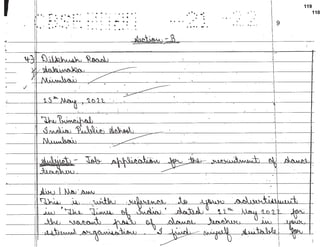 119
118
9
21 - 22
Section - B
4) Dilkhush Road
Mumbai
25th May, 2022
The Principal
India Public School
Mumbai
Subject - Job application for the recruitment of dance
teacher
Sir / Ma'am
This is with reference to your advertisement
in 'The Times of India' dated 21st May 2022 for
the vacant post of dance teacher in your
esteemed organisation. I find myself suitable for